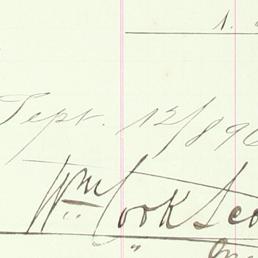 1.
Sept. 12/896
Wm. Cook Sco
"